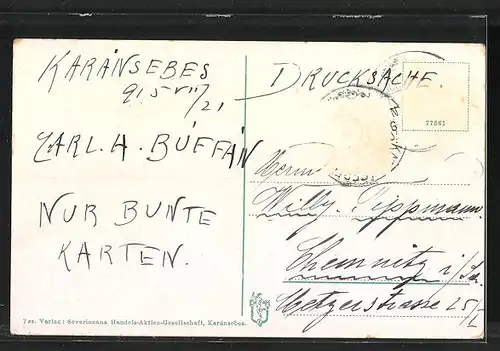 KARÁNSEBES
DRUCKSACHE.
CARL. A. BUFFÁN
NUR BUNTE
KARTEN.
77561
Herrn
Willy. Tippmann.
Chemnitz i/Sa.
Metzerstrasse 25/I
Verlag: Severineana Handels-Aktien-Gesellschaft, Karánsebes.